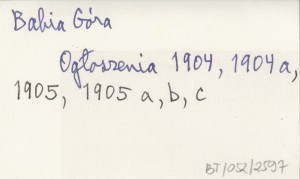 Babia Góra
Ogłoszenia 1904, 1904a,
1905, 1905 a, b, c
BT/052/2597